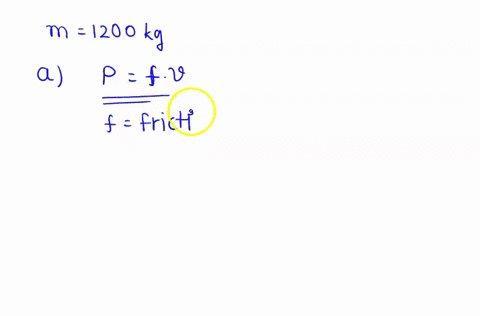 m = 1200 kg
a) P = f.v
f = fricti